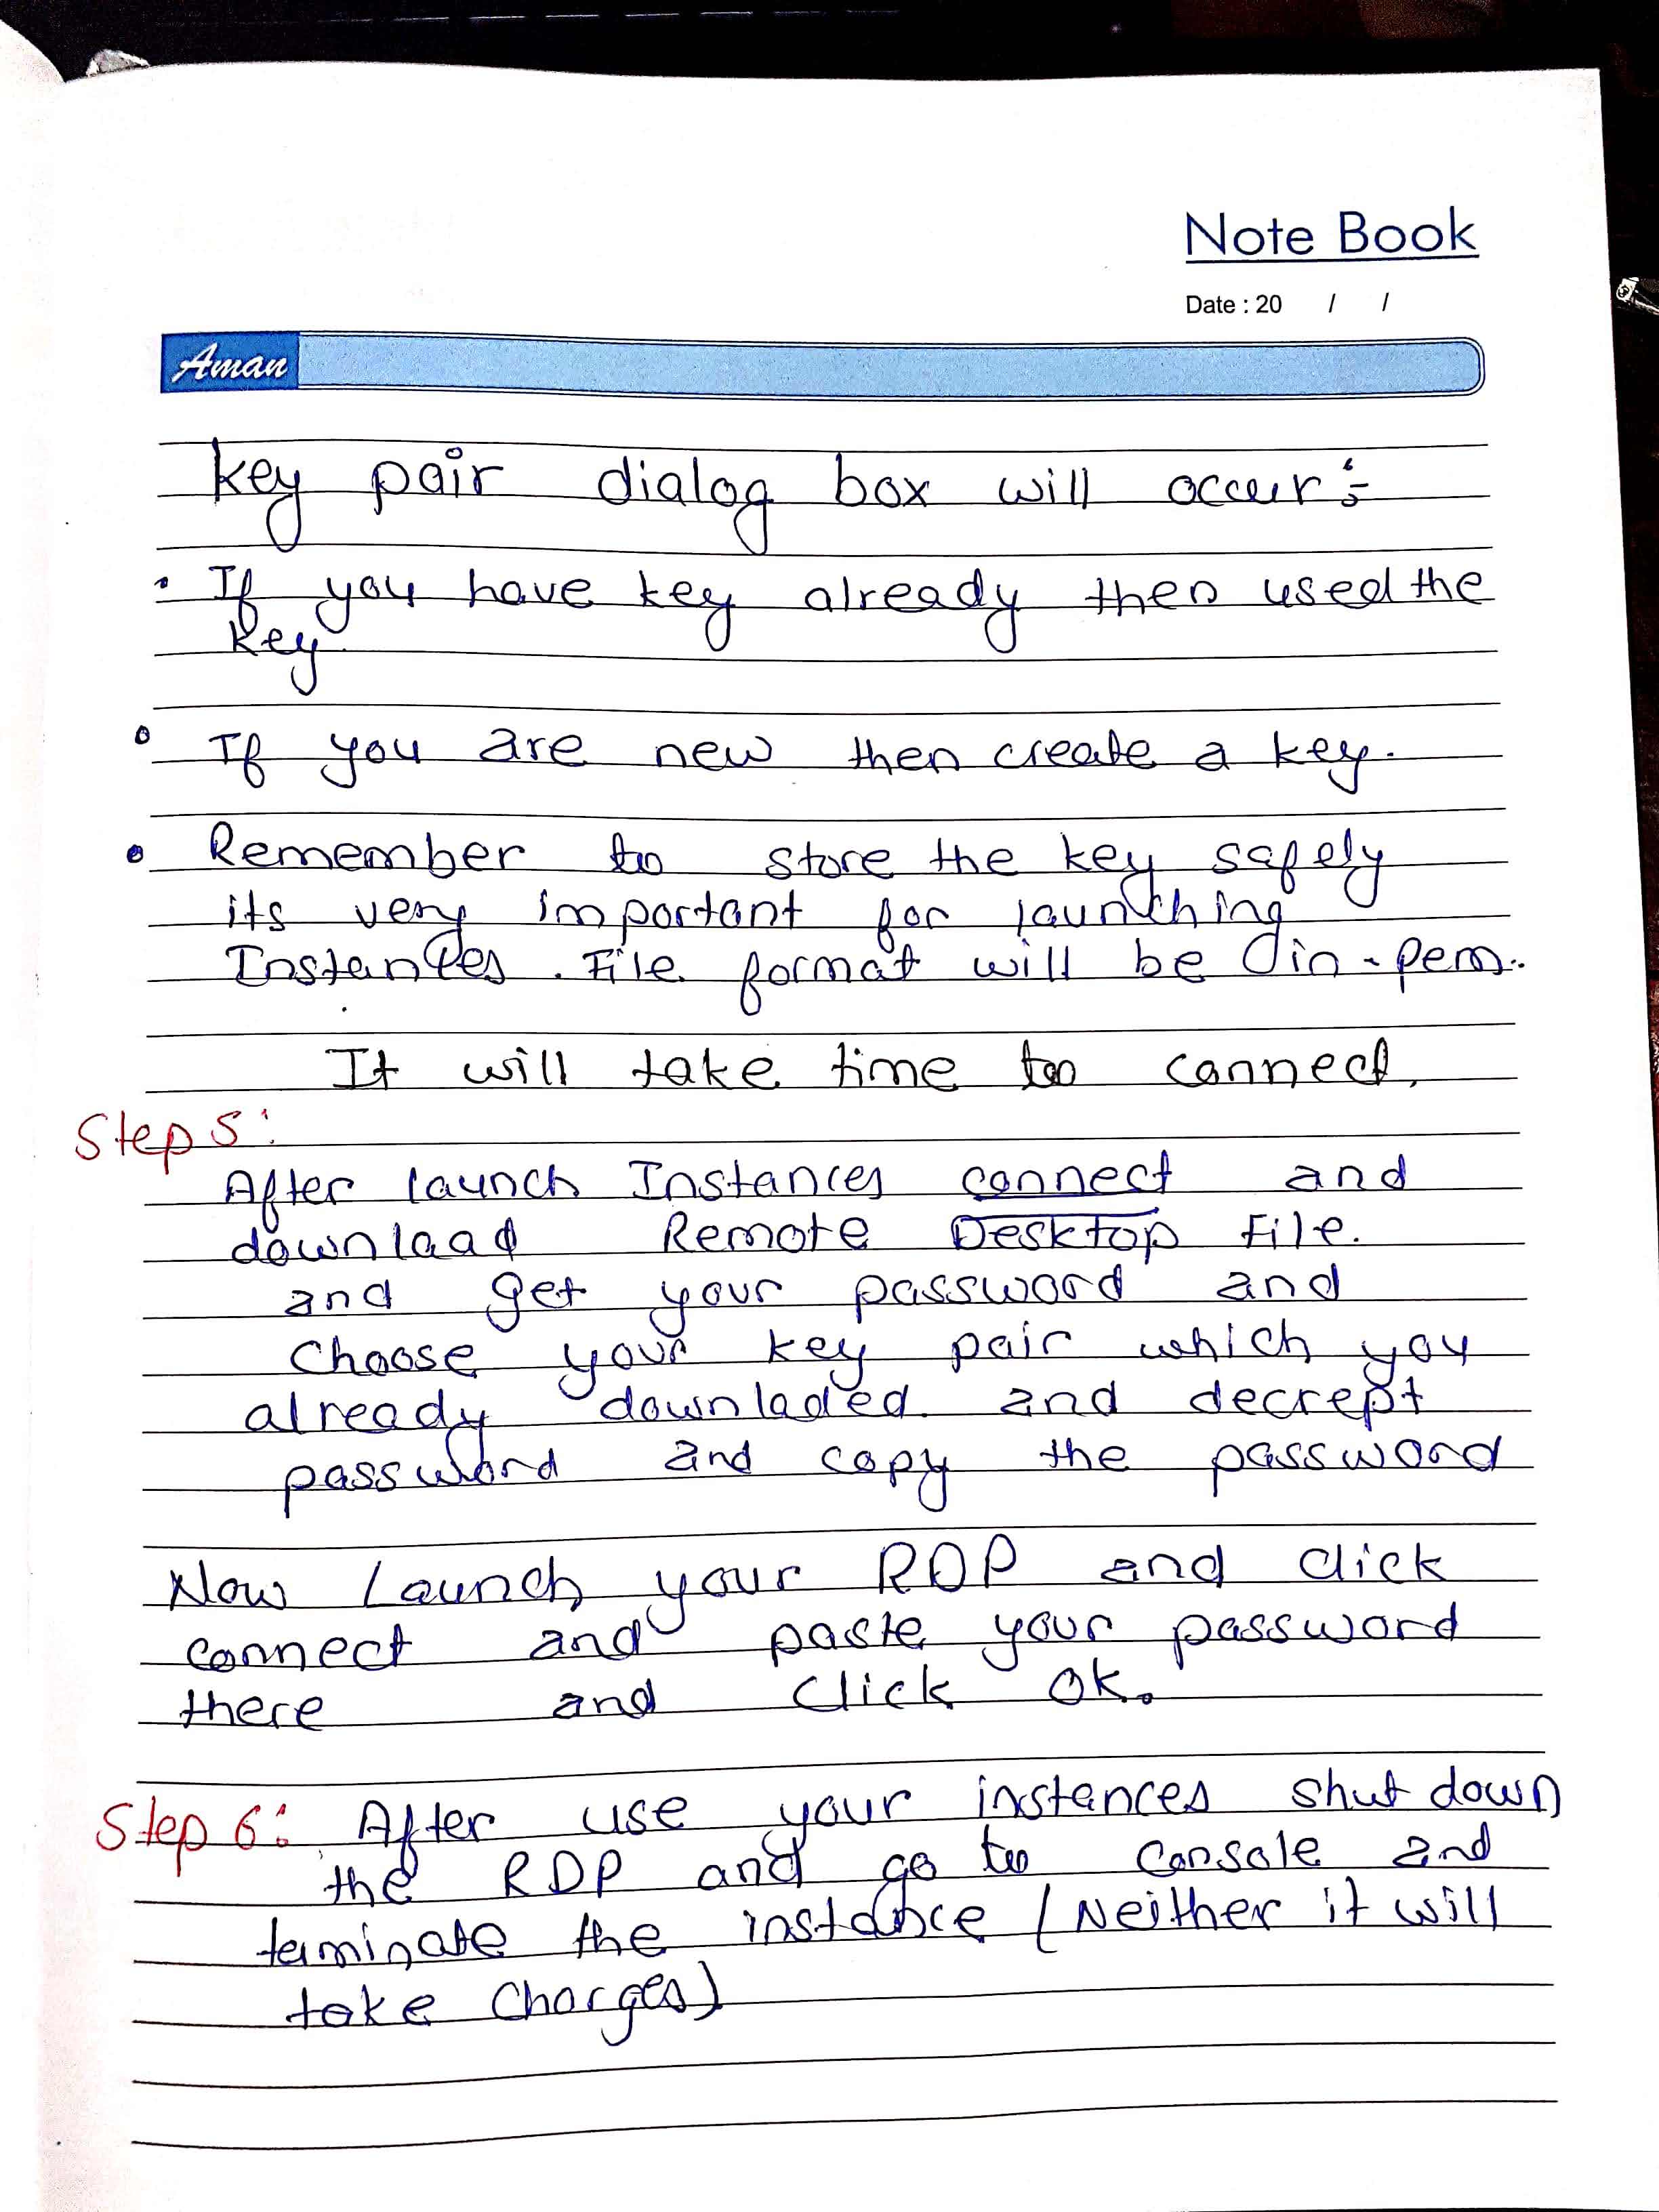 Note Book
Date : 20 / /
Aman
key pair dialog box will occur :-
• If you have key already then used the
key.
• If you are new then create a key.
• Remember to store the key safely
its very important for launching
Instances. File format will be in .pem.
It will take time too connect.
Step 5:
After launch Instances connect and
download Remote Desktop File.
and get your password and
Choose your key pair which you
already downladed. and decrept
password and copy the password
Now Launch your RDP and click
connect and paste your password
there and click OK.
Step 6: After use your instances shut down
the RDP and go to Console and
terminate the instance (Neither it will
take charges)